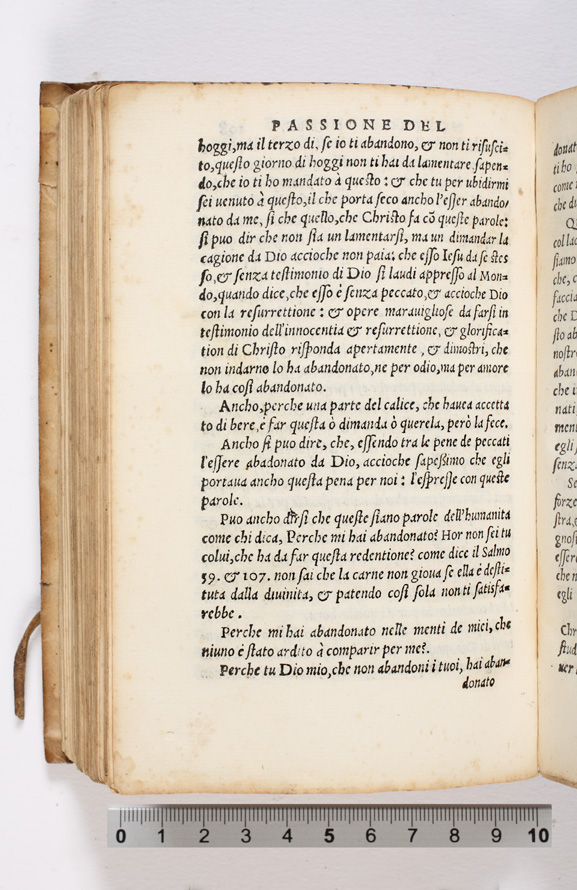 PASSIONE DEL
hoggi, ma il terzo di, se io ti abandono, & non ti risusci-
to, questo giorno di hoggi non ti hai da lamentare sapen-
do, che io ti ho mandato à questo: & che tu per ubidirmi
sei uenuto à questo, il che porta seco ancho l'esser abando-
nato da me, si che quello, che Christo fa cō queste parole:
si puo dir che non sia un lamentarsi, ma un dimandar la
cagione da Dio accioche non paia: che esso Iesu da se stes
so, & senza testimonio di Dio si laudi appresso al Mon-
do, quando dice, che esso è senza peccato, & accioche Dio
con la resurrettione: & opere marauigliose da farsi in
testimonio dell'innocentia & resurrettione, & glorifica-
tion di Christo risponda apertamente, & dimostri, che
non indarno lo ha abandonato, ne per odio, ma per amore
lo ha così abandonato.
Ancho, perche una parte del calice, che hauea accetta
to di bere, è far questa ò dimanda ò querela, però la fece.
Ancho si puo dire, che, essendo tra le pene de peccati
l'essere abadonato da Dio, accioche sapeßimo che egli
portaua ancho questa pena per noi: l'espresse con queste
parole.
Puo ancho dirsi che queste siano parole dell'humanita
come chi dica, Perche mi hai abandonato? Hor non sei tu
colui, che ha da far questa redentione? come dice il Salmo
59. & 107. non sai che la carne non gioua se ella è desti-
tuta dalla diuinita, & patendo così sola non ti satisfa-
rebbe.
Perche mi hai abandonato nelle menti de miei, che
niuno è stato ardito à comparir per me?
Perche tu Dio mio, che non abandoni i tuoi, hai aban-
donato
0 1 2 3 4 5 6 7 8 9 10